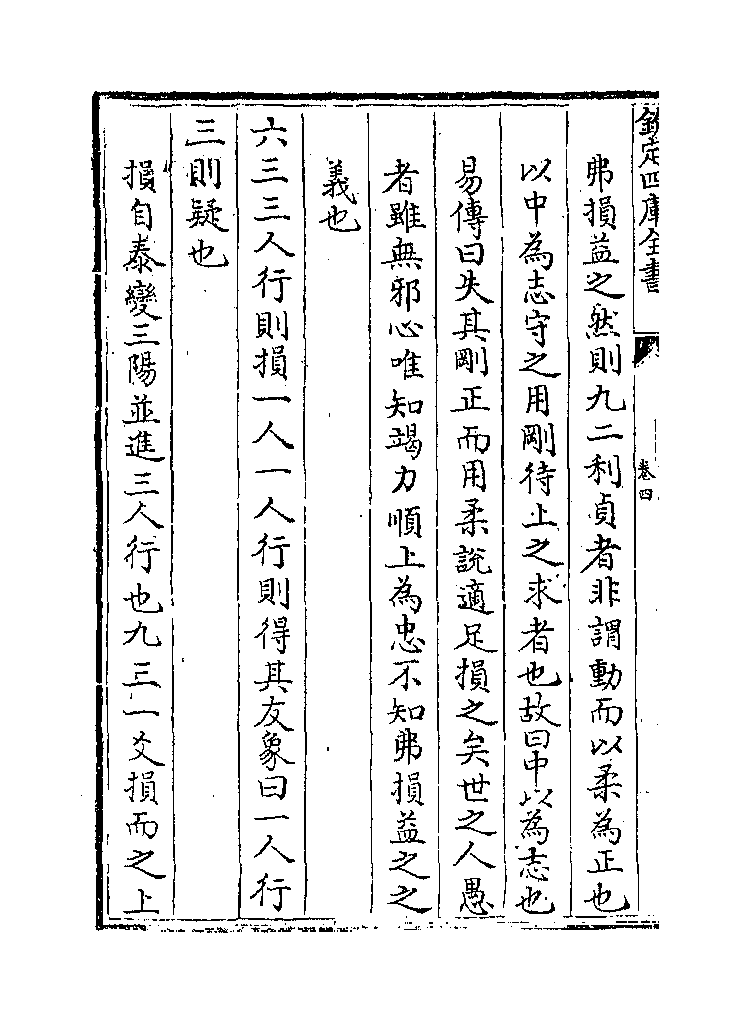 欽定四庫全書
卷四
弗損益之然則九二利貞者非謂動而以柔為正也
以中為志守之用剛待上之求者也故曰中以為志也
易傳曰失其剛正而用柔説適足損之矣世之人愚
者雖無邪心唯知竭力順上為忠不知弗損益之之
義也
六三三人行則損一人一人行則得其友象曰一人行
三則疑也
損自泰變三陽並進三人行也九三一爻損而之上